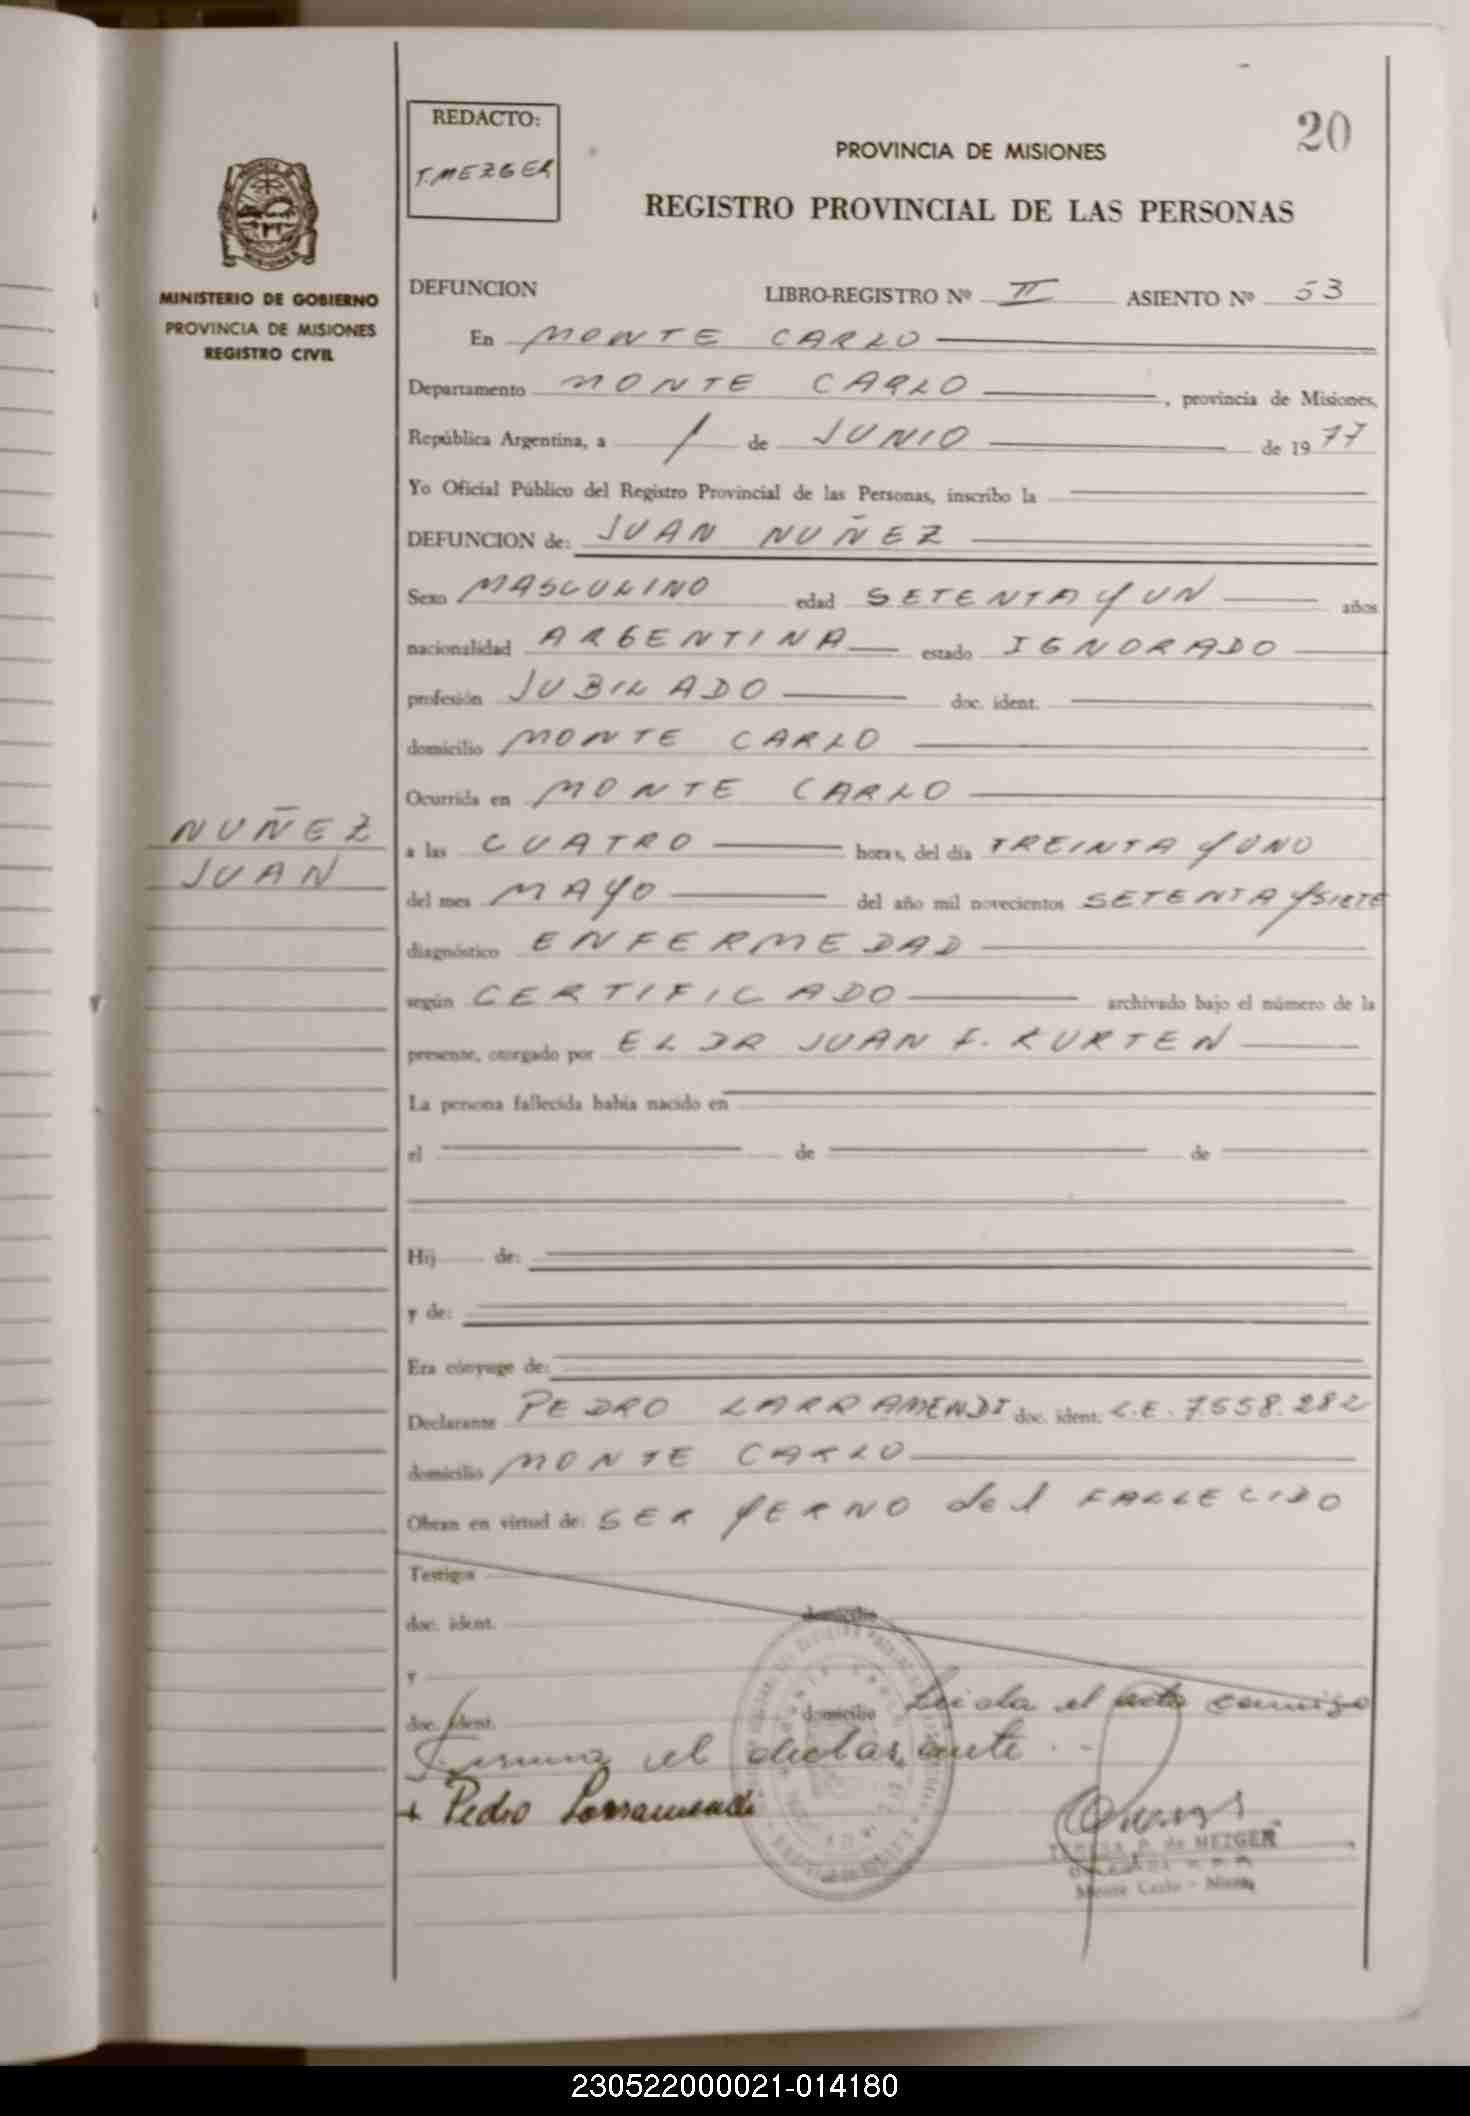 20
REDACTO:
T. MEZGER
PROVINCIA DE MISIONES
REGISTRO PROVINCIAL DE LAS PERSONAS
MINISTERIO DE GOBIERNO
PROVINCIA DE MISIONES
REGISTRO CIVIL
DEFUNCION LIBRO-REGISTRO Nº II ASIENTO Nº 53
En MONTE CARLO
Departamento MONTE CARLO, provincia de Misiones,
República Argentina, a 1 de JUNIO de 1977
Yo Oficial Público del Registro Provincial de las Personas, inscribo la
DEFUNCION de: JUAN NUÑEZ
Sexo MASCULINO edad SETENTA Y UN años
nacionalidad ARGENTINA estado IGNORADO
profesión JUBILADO doc. ident.
domicilio MONTE CARLO
Ocurrida en MONTE CARLO
NUÑEZ
JUAN
a las CUATRO horas, del día TREINTA Y UNO
del mes MAYO del año mil novecientos SETENTA Y SIETE
diagnóstico ENFERMEDAD
según CERTIFICADO archivado bajo el número de la
presente, otorgado por EL DR JUAN F. KURTEN
La persona fallecida había nacido en
el de de
Hij de:
y de:
Era cónyuge de:
Declarante PEDRO LARRAMENDI doc. ident. L.E. 7.558.282
domicilio MONTE CARLO
Obran en virtud de: SER YERNO del FALLECIDO
Testigos
doc. ident. domicilio
y
doc. ident. domicilio Leida el acta conmigo
Firma el declarante
+ Pedro Larramendi
TERESA P. de MEZGER
Monte Carlo - Mnes.
230522000021-014180